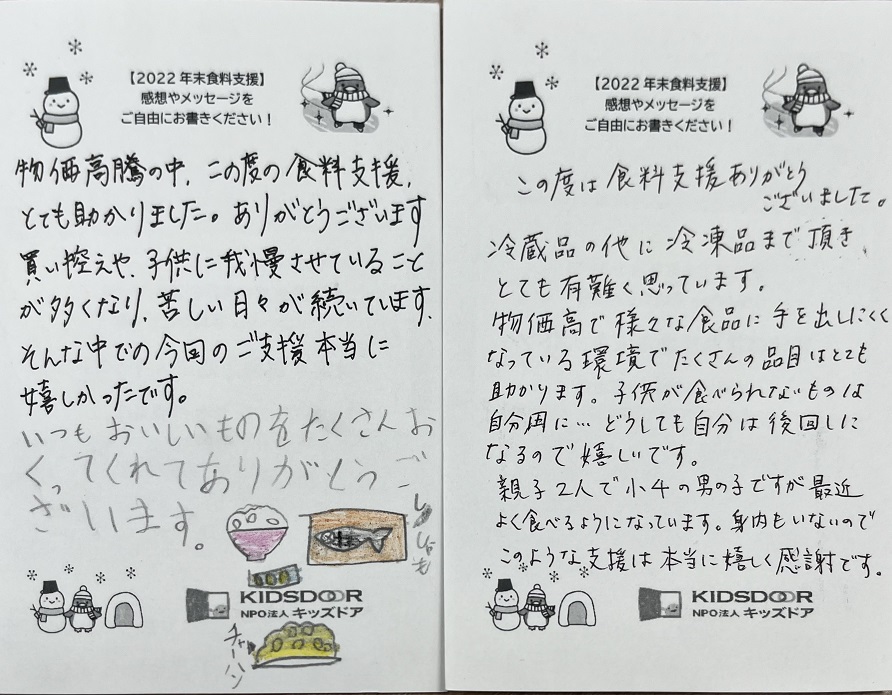 【2022 年末食料支援】
感想やメッセージを
ご自由にお書きください！
物価高騰の中、この度の食料支援、
とても助かりました。ありがとうございます
買い控えや、子供に我慢させていること
が多くなり、苦しい日々が続いています。
そんな中での今回のご支援本当に
嬉しかったです。
いつもおいしいものをたくさんお
くってくれてありがとうご
ざいます。
チャーハン
KIDSDOOR
NPO法人 キッズドア
【2022 年末食料支援】
感想やメッセージを
ご自由にお書きください！
この度は食料支援ありがとう
ございました。
冷蔵品の他に冷凍品まで頂き
とても有難く思っています。
物価高で様々な食品に手を出しにくく
なっている環境でたくさんの品目はとても
助かります。子供が食べられないものは
自分用に…どうしても自分は後回しに
なるので嬉しいです。
親子2人で小4の男の子ですが最近
よく食べるようになっています。身内もいないので
このような支援は本当に嬉しく感謝です。
KIDSDOOR
NPO法人 キッズドア